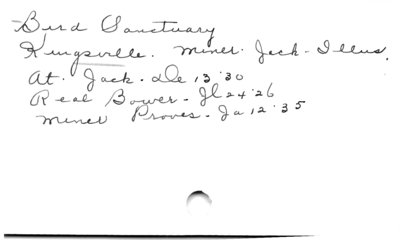 Bird Sanctuary
Kingsville. Miner. Jack - Illus.
At. Jack. De 13 '30
Real Bower - Jl 24 '26
Miner Proves - Ja 12 '35